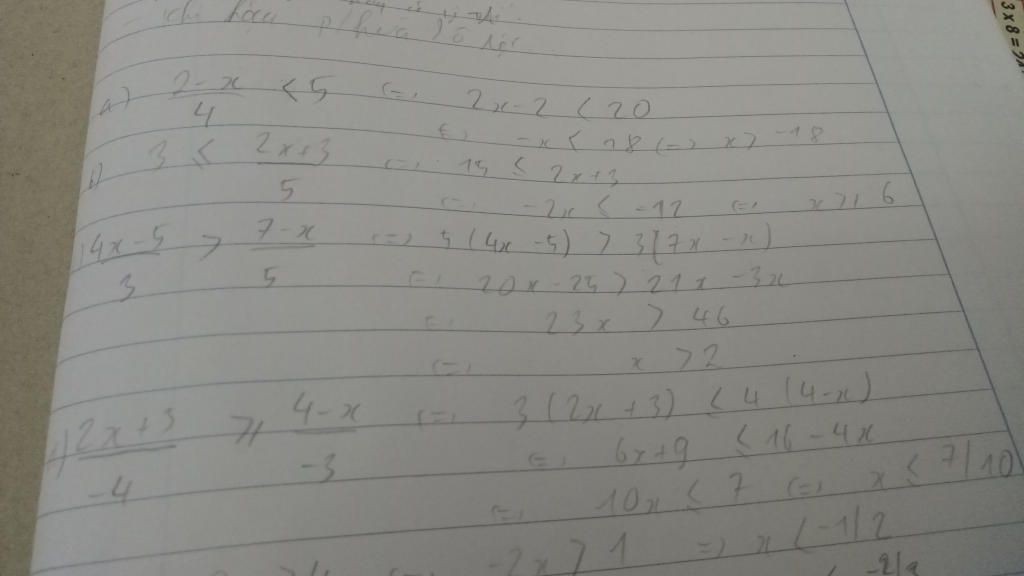 a) 2-x/4 < 5 <=> 2x-2 < 20
<=> -x < 18 <=> x > -18
b) 3 ≤ 2x+3/5 <=> 15 ≤ 2x+3
<=> -2x ≤ -12 <=> x ≥ 6
4x-5/3 > 7-x/5 <=> 5(4x-5) > 3(7x-x)
<=> 20x-25 > 21x-3x
<=> 23x > 46
<=> x > 2
2x+3/-4 ≥ 4-x/-3 <=> 3(2x+3) ≤ 4(4-x)
<=> 6x+9 ≤ 16-4x
<=> 10x ≤ 7 <=> x ≤ 7/10
-2x > 1 => x < -1/2
3x8=